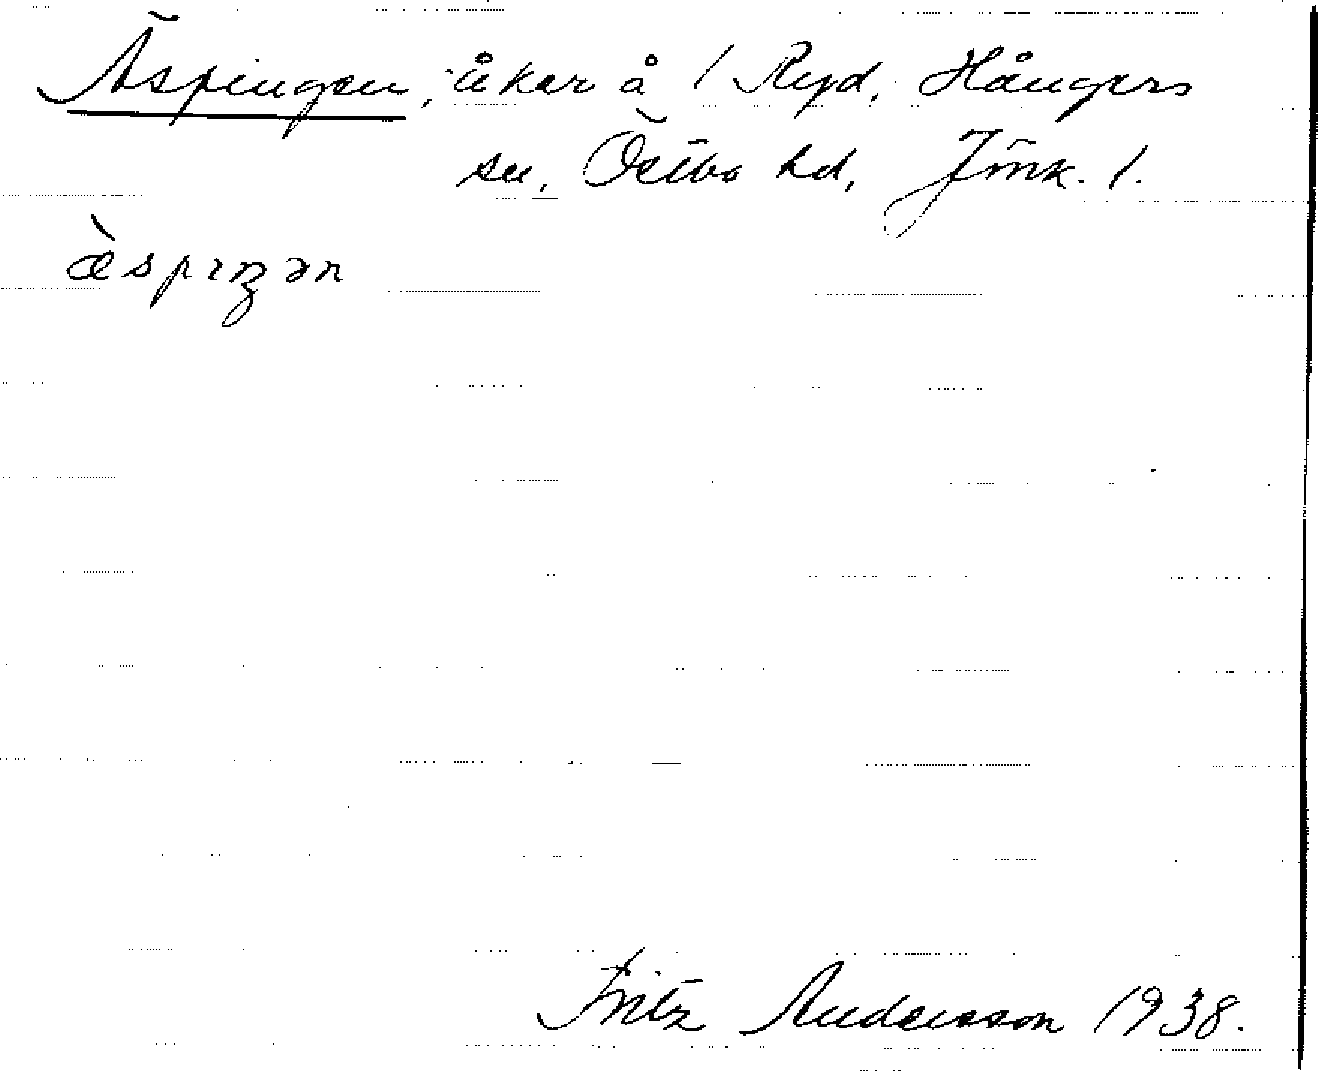 Äspingen, åker å 1 Ryd, Hångers
sn, Östbo hd, Jönk. l.
æ̀spıŋən
Fritz Andersson 1938.